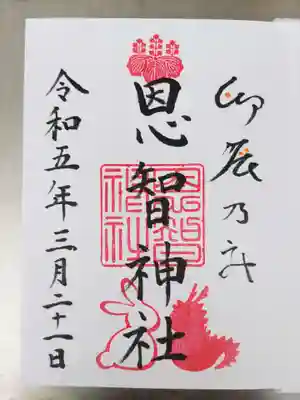 卯辰乃
恩智神社
恩智神社
令和五年三月二十一日